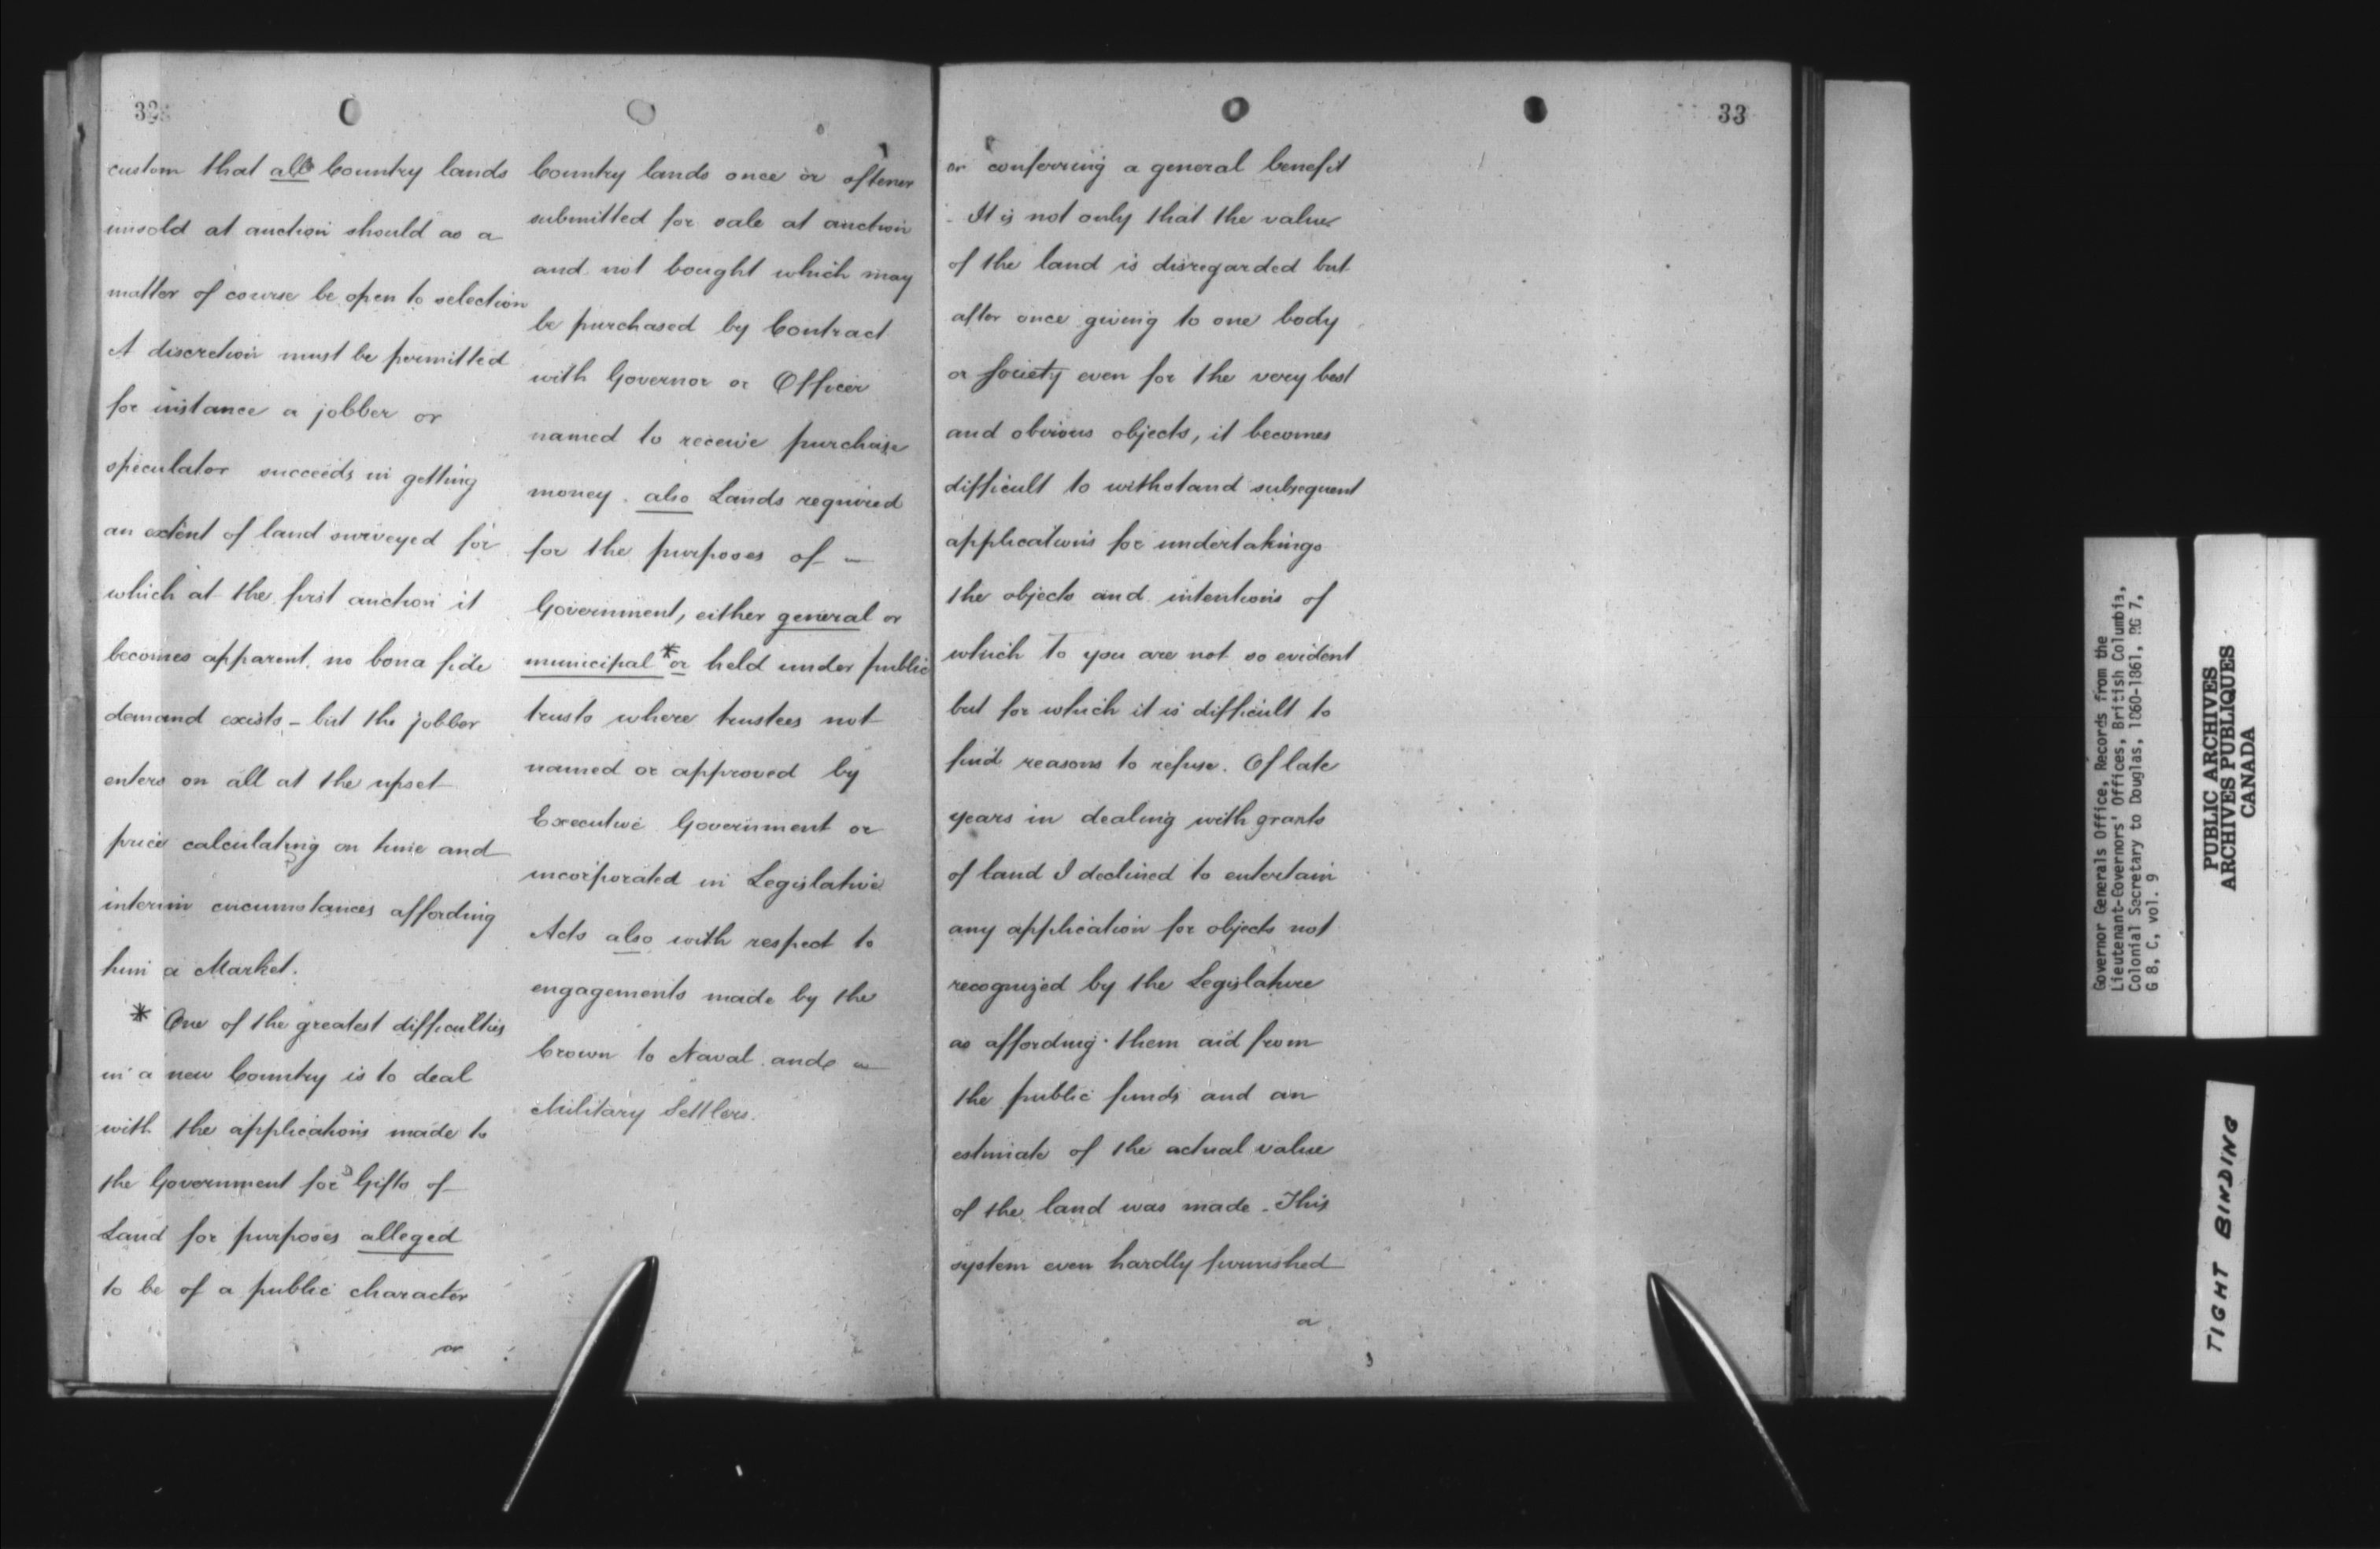 32
custom that all Country lands
unsold at auction should as a
matter of course be open to selection
A discretion must be permitted
for instance a jobber or
speculator succeeds in getting
an extent of land surveyed for
which at the first auction it
becomes apparent no bona fide
demand exists - but the jobber
enters on all at the upset
price calculating on time and
interim circumstances affording
him a Market.
* One of the greatest difficulties
in a new Country is to deal
with the applications made to
the Government for Gifts of
Land for purposes alleged
to be of a public character
or
Country lands once or oftener
submitted for sale at auction
and not bought which may
be purchased by Contract
with Governor or Officer
named to receive purchase
money. also Lands required
for the purposes of -
Government, either general or
municipal * or held under public
trusts where trustees not
named or approved by
Executive Government or
incorporated in Legislative
Acts also with respect to
engagements made by the
Crown to Naval and
Military Settlers.
33
or conferring a general benefit
. It is not only that the value
of the land is disregarded but
after once giving to one body
or Society even for the very best
and obvious objects, it becomes
difficult to withstand subsequent
applications for undertakings
the objects and intentions of
which to you are not so evident
but for which it is difficult to
find reasons to refuse. Of late
years in dealing with grants
of land I declined to entertain
any application for objects not
recognized by the Legislature
as affording them aid from
the public funds and an
estimate of the actual value
of the land was made. This
system even hardly furnished
a
Governor Generals Office, Records from the
Lieutenant-Governors' Offices, British Columbia,
Colonial Secretary to Douglas, 1860-1861, RG 7,
G 8, C, vol. 9
PUBLIC ARCHIVES
ARCHIVES PUBLIQUES
CANADA
TIGHT BINDING